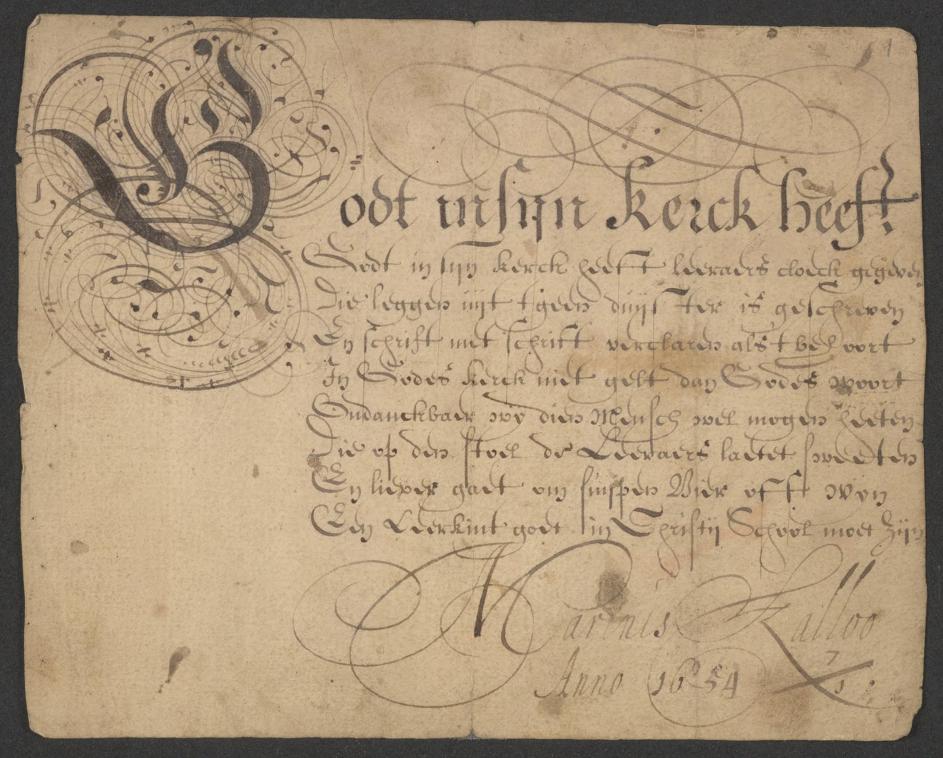 1
Godt in sijn kerck heeft
Godt in sijn kerck heeft leeraers cloeck gegeven
Die leggen uijt tgeen duijster is geschreven
En schrift met schrift verclaren als t behoort
In Godes kerck niet gelt dan Godes woort
Ondanckbaer wy dien Mensch wel mogen heeten
Die op den stoel de Leeraers laetet sweeten
En liever gaet om suijpen Bier oft wyn
Een Leerkint godt in Christij School moet zijn
Marinis Kalloo
Anno 1654 7/1